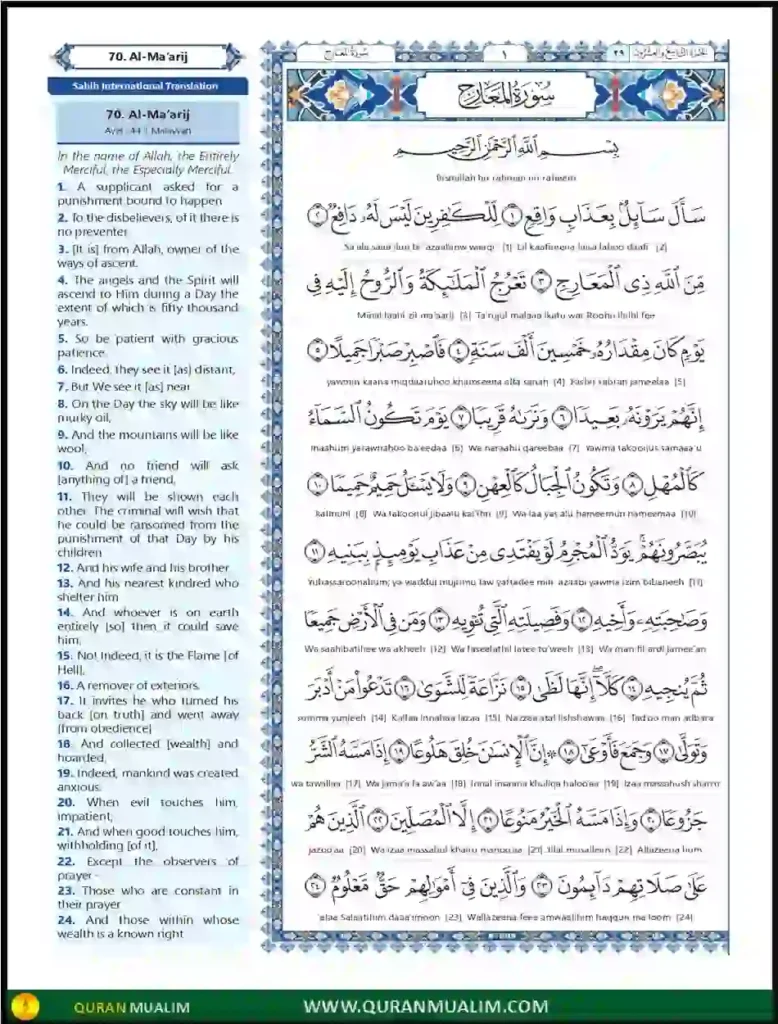 70. Al-Ma'arij
Sahih International Translation
70. Al-Ma'arij
In the name of Allah, the Entirely
Merciful, the Especially Merciful.
1. A supplicant asked for a
punishment bound to happen
2. To the disbelievers, of it there is
no preventer
3. [It is] from Allah, owner of the
ways of ascent.
4. The angels and the Spirit will
ascend to Him during a Day the
extent of which is fifty thousand
years.
5. So be patient with gracious
patience.
6. Indeed, they see it [as] distant,
7. But We see it [as] near
8. On the Day the sky will be like
murky oil,
9. And the mountains will be like
wool,
10. And no friend will ask
[anything of] a friend,
11. They will be shown each
other. The criminal will wish that
he could be ransomed from the
punishment of that Day by his
children
12. And his wife and his brother
13. And his nearest kindred who
shelter him
14. And whoever is on earth
entirely [so] then it could save
him.
15. No! Indeed, it is the Flame [of
Hell],
16. A remover of exteriors.
17. It invites he who turned his
back [on truth] and went away
[from obedience]
18. And collected [wealth] and
hoarded.
19. Indeed, mankind was created
anxious:
20. When evil touches him,
impatient,
21. And when good touches him,
withholding [of it],
22. Except the observers of
prayer -
23. Those who are constant in
their prayer
24. And those within whose
wealth is a known right
سُورَةُ المَعَارِج
١
٢٩
الجزء التاسع والعشرون
سُورَةُ المَعَارِج
بِسْمِ اللَّهِ الرَّحْمَٰنِ الرَّحِيمِ
Bismillah hir rahman nir raheem
سَأَلَ سَآئِلٌۢ بِعَذَابٍ وَاقِعٍ ١ لِّلْكَٰفِرِينَ لَيْسَ لَهُۥ دَافِعٌ ٢
Sa ala saaa'ilun bi 'azaabinw waaqi' [1] Lil kaafireena laisa lahoo daafi' [2]
مِّنَ ٱللَّهِ ذِى ٱلْمَعَارِجِ ٣ تَعْرُجُ ٱلْمَلَٰٓئِكَةُ وَٱلرُّوحُ إِلَيْهِ فِى
Minal laahi zil ma'aarij [3] Ta'rujul malaaa'ikatu war Roohu ilaihi fee
يَوْمٍ كَانَ مِقْدَارُهُۥ خَمْسِينَ أَلْفَ سَنَةٍ ٤ فَٱصْبِرْ صَبْرًا جَمِيلًا ٥
yawmin kaana miqdaaruhoo khamseena alfa sanah [4] Fasbir sabran jameelaa [5]
إِنَّهُمْ يَرَوْنَهُۥ بَعِيدًا ٦ وَنَرَىٰهُ قَرِيبًا ٧ يَوْمَ تَكُونُ ٱلسَّمَآءُ
Innahum yarawnahoo ba'eedaa [6] Wa naraahu qareebaa [7] Yawma takoonus samaaa'u
كَٱلْمُهْلِ ٨ وَتَكُونُ ٱلْجِبَالُ كَٱلْعِهْنِ ٩ وَلَا يَسْـَٔلُ حَمِيمٌ حَمِيمًا ١٠
kalmuhl [8] Wa takoonul jibaalu kal'ihn [9] Wa laa yas'alu hameemun hameemaa [10]
يُبَصَّرُونَهُمْ ۚ يَوَدُّ ٱلْمُجْرِمُ لَوْ يَفْتَدِى مِنْ عَذَابِ يَوْمِئِذٍۭ بِبَنِيهِ ١١
Yubassaroonahum; ya waddul mujrimu law yaftadee min 'azaabi yawma'izim bibaneeh [11]
وَصَٰحِبَتِهِۦ وَأَخِيهِ ١٢ وَفَصِيلَتِهِ ٱلَّتِى تُـْٔوِيهِ ١٣ وَمَن فِى ٱلْأَرْضِ جَمِيعًا
Wa saahibatihee wa akheeh [12] Wa faseelathil latee tu'weeh [13] Wa man fil ardi jamee'an
ثُمَّ يُنجِيهِ ١٤ كَلَّآ ۖ إِنَّهَا لَظَىٰ ١٥ نَزَّاعَةً لِّلشَّوَىٰ ١٦ تَدْعُوا۟ مَنْ أَدْبَرَ
summa yunjeeh [14] Kallaa innahaa lazaa [15] Nazzaa'atal lishshawaa [16] Tad'oo man adbara
وَتَوَلَّىٰ ١٧ وَجَمَعَ فَأَوْعَىٰٓ ١٨ ۞ إِنَّ ٱلْإِنسَٰنَ خُلِقَ هَلُوعًا ١٩ إِذَا مَسَّهُ ٱلشَّرُّ
wa tawallaa [17] Wa jama'a fa aw'aa [18] Innal insaana khuliqa haloo'aa [19] Izaa massahush sharru
جَزُوعًا ٢٠ وَإِذَا مَسَّهُ ٱلْخَيْرُ مَنُوعًا ٢١ إِلَّا ٱلْمُصَلِّينَ ٢٢ ٱلَّذِينَ هُمْ
jazoo'aa [20] Wa izaa massahul khairu manoo'aa [21] Illal musalleen [22] Allazeena hum
عَلَىٰ صَلَاتِهِمْ دَآئِمُونَ ٢٣ وَٱلَّذِينَ فِىٓ أَمْوَٰلِهِمْ حَقٌّ مَّعْلُومٌ ٢٤
'alaa Salaatihim daaa'imoon [23] Wallazeena feee amwaalihim haqqun ma'loom [24]
QURAN MUALIM
WWW.QURANMUALIM.COM